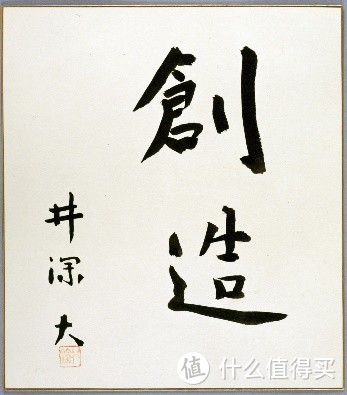 創造
井深大
值 什么值得买